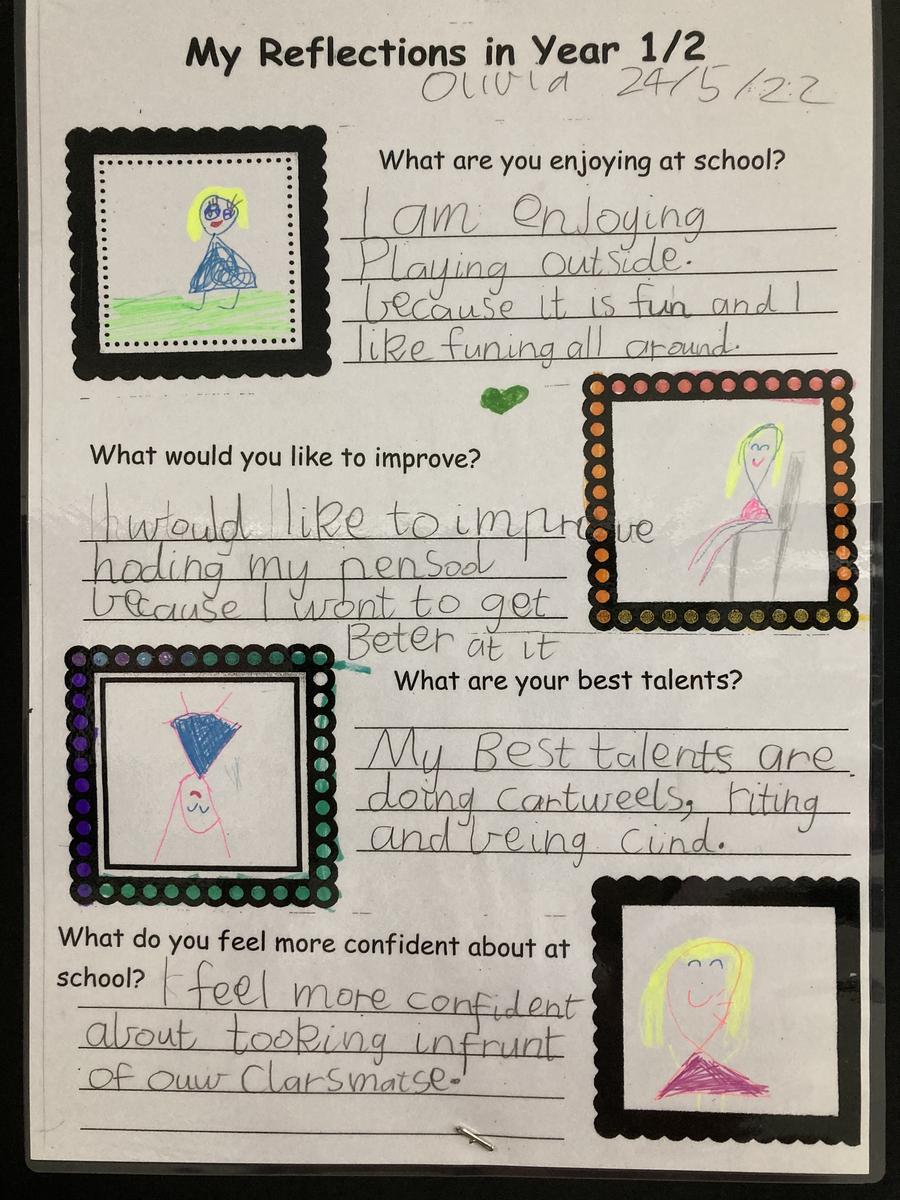 My Reflections in Year 1/2
Olivia 24/5/22
What are you enjoying at school?
I am enJoying
Playing outside.
because it is fun and I
like funing all around.
What would you like to improve?
I would like to improve
hoding my pensod
because I wont to get
Beter at it
What are your best talents?
My Best talents are
doing cartweels, riting
and being cind.
What do you feel more confident about at
school? I feel more confident
about tooking infrunt
of ouw Clarsmatse.